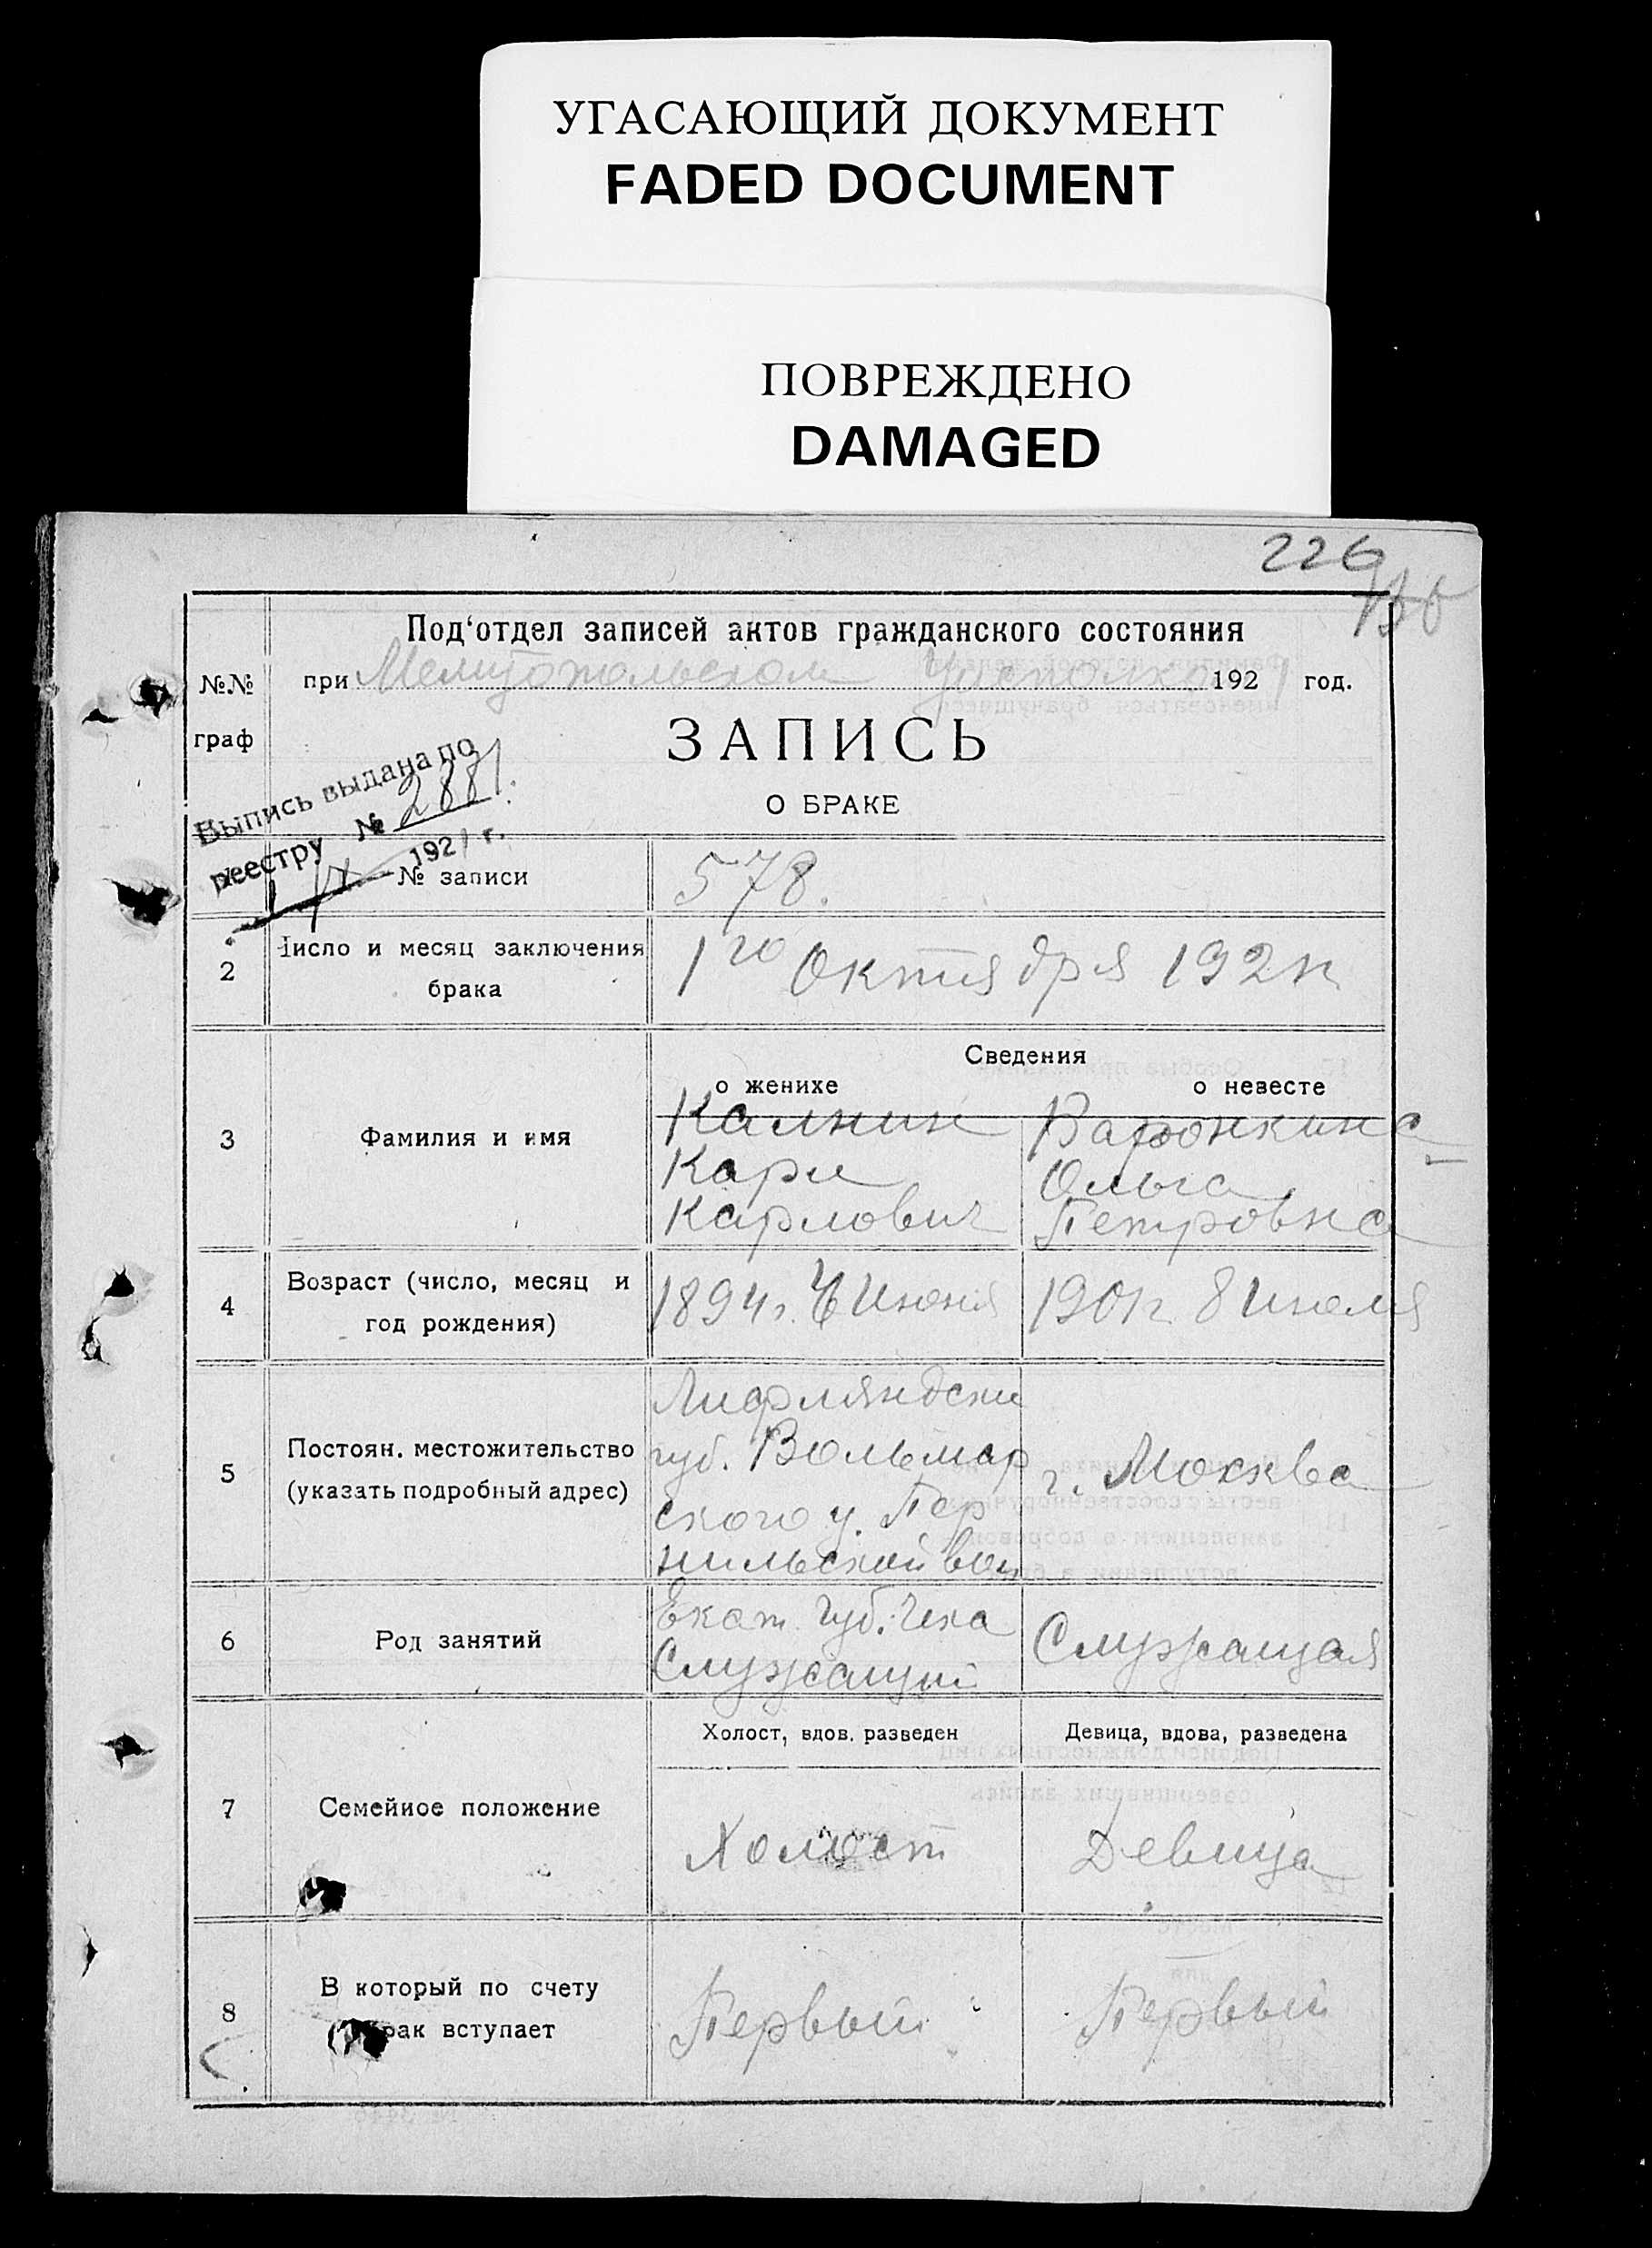 УГАСАЮЩИЙ ДОКУМЕНТ
FADED DOCUMENT
ПОВРЕЖДЕНО
DAMAGED
226
Под‘отдел записей актов гражданского состояния
№№ граф
при Мелитопольском 192 1 год.
ЗАПИСЬ
О БРАКЕ
Выпись выдана по
реестру № 2881.
1921 г.
№ записи
578.
2
Число и месяц заключения
брака
1го Октября 1921г
Сведения
о женихе
о невесте
3
Фамилия и имя
Калнин
Карл
Карлович
Ольга
Петровна
4
Возраст (число, месяц и
год рождения)
1894г. Июня
1901г. 8 Июля
5
Постоян. местожительство
(указать подробный адрес)
Лифляндск
губ. Вольмар
ского у. Пер
нильской вол
г. Москва
6
Род занятий
Екат. Губ. Чека
Служащий
Служащая
7
Семейное положение
Холост, вдов. разведен
Девица, вдова, разведена
Холост
Девица
8
В который по счету
брак вступает
Первый
Первый